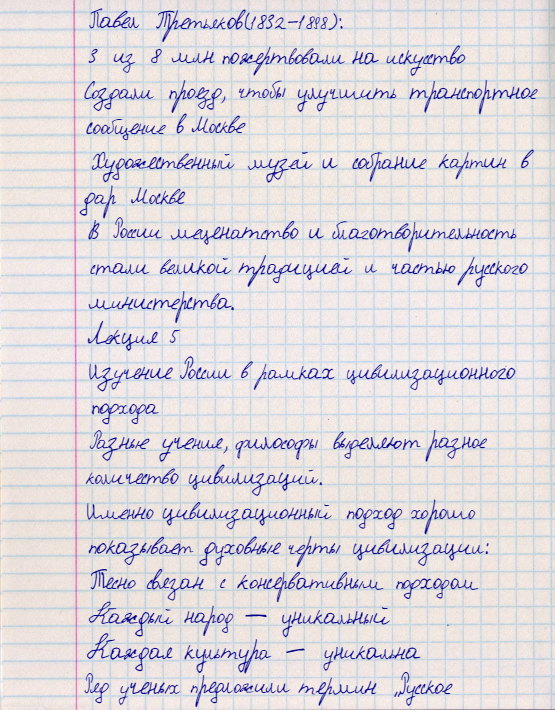 Павел Третьяков(1832-1898):
3 из 8 млн пожертвовали на искусство
Создали проезд, чтобы улучшить транспортное
сообщение в Москве
Художественный музей и собрание картин в
дар Москве
В России меценатство и благотворительность
стали великой традицией и частью русского
министерства.
Лекция 5
Изучение России в рамках цивилизационного
подхода
Разные учения, философы выделяют разное
количество цивилизаций.
Именно цивилизационный подход хорошо
показывает духовные черты цивилизации:
Тесно связан с консервативным подходом
Каждый народ — уникальный
Каждая культура — уникальна
Ряд ученых предложили термин „Русское